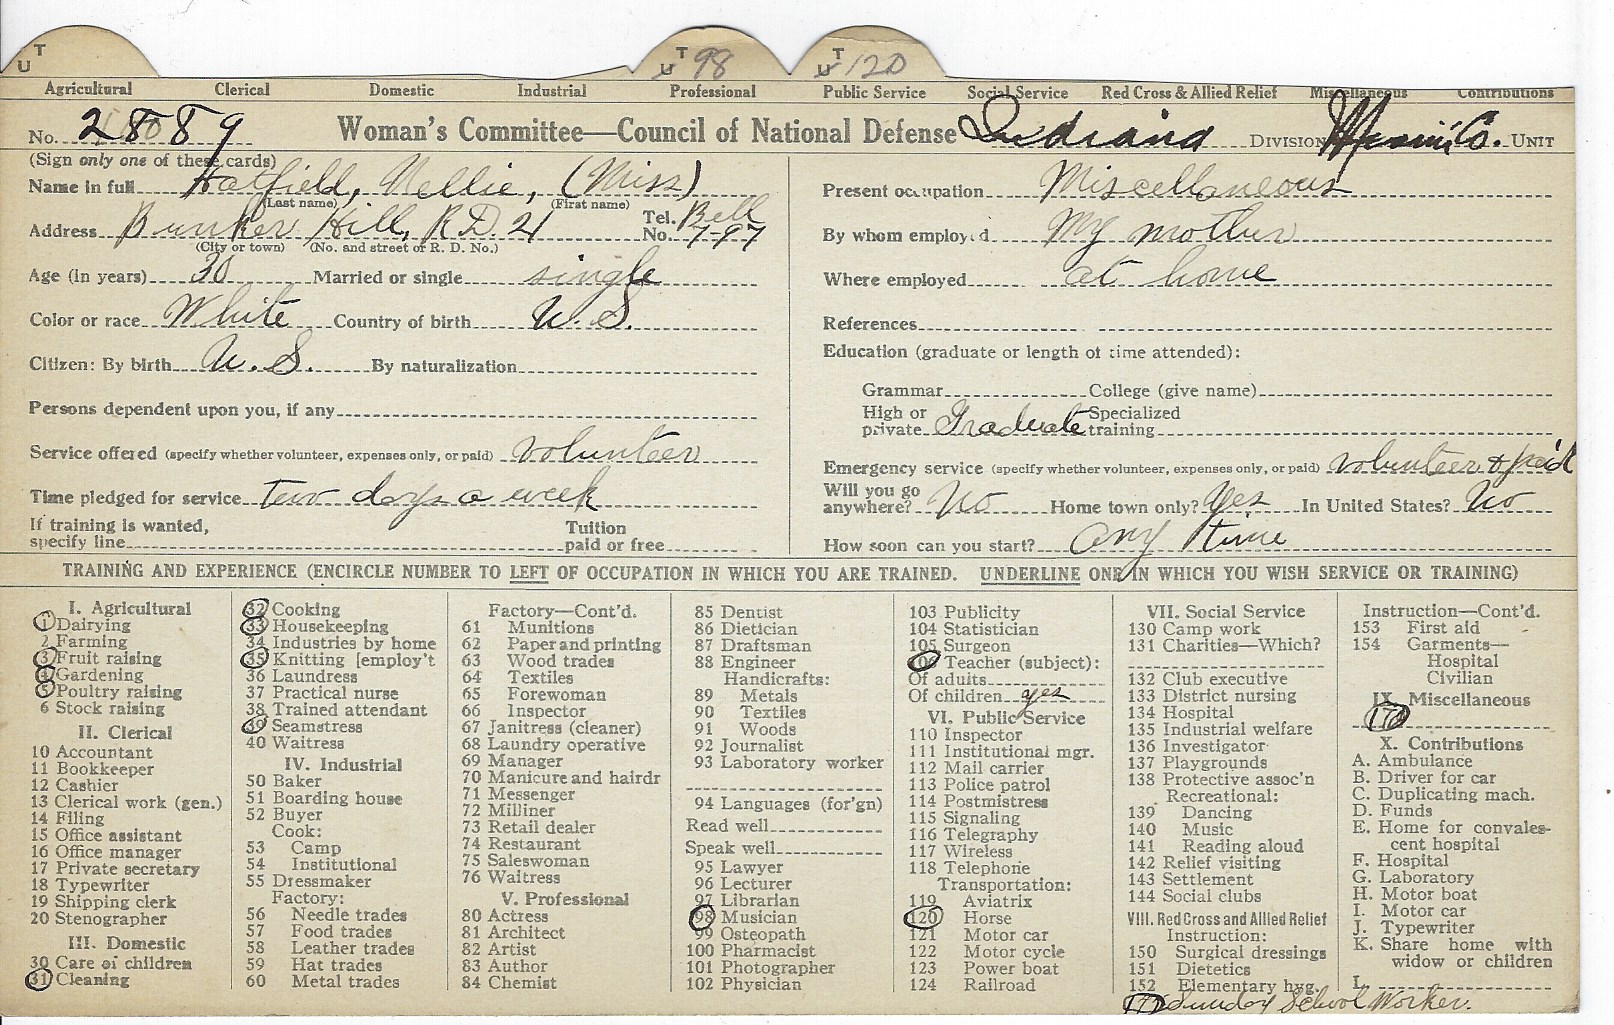 T
U
T
U 98
T
U 120
Agricultural Clerical Domestic Industrial Professional Public Service Social Service Red Cross & Allied Relief Miscellaneous Contributions
No. 2889 Woman's Committee—Council of National Defense Indiana DIVISION Miami Co. UNIT
(Sign only one of these cards)
Name in full Hatfield, Nellie, (Miss)
(Last name) (First name)
Address Bunker Hill, R.D. 21 Tel. No. Bell 7-97
(City or town) (No. and street or R. D. No.)
Age (in years) 30 Married or single single
Color or race White Country of birth U. S.
Citizen: By birth U. S. By naturalization
Persons dependent upon you, if any
Service offered (specify whether volunteer, expenses only, or paid) volunteer
Time pledged for service two days a week
If training is wanted,
specify line
Tuition
paid or free
Present occupation Miscellaneous
By whom employed My mother
Where employed at home
References
Education (graduate or length of time attended):
Grammar College (give name)
High or private Graduate Specialized training
Emergency service (specify whether volunteer, expenses only, or paid) volunteer & paid
Will you go anywhere? No Home town only? Yes In United States? No
How soon can you start? any time
TRAINING AND EXPERIENCE (ENCIRCLE NUMBER TO LEFT OF OCCUPATION IN WHICH YOU ARE TRAINED. UNDERLINE ONE IN WHICH YOU WISH SERVICE OR TRAINING)
I. Agricultural
1 Dairying
2 Farming
3 Fruit raising
4 Gardening
5 Poultry raising
6 Stock raising
II. Clerical
10 Accountant
11 Bookkeeper
12 Cashier
13 Clerical work (gen.)
14 Filing
15 Office assistant
16 Office manager
17 Private secretary
18 Typewriter
19 Shipping clerk
20 Stenographer
III. Domestic
30 Care of children
31 Cleaning
32 Cooking
33 Housekeeping
34 Industries by home
35 Knitting [employ't
36 Laundress
37 Practical nurse
38 Trained attendant
39 Seamstress
40 Waitress
IV. Industrial
50 Baker
51 Boarding house
52 Buyer
Cook:
53 Camp
54 Institutional
55 Dressmaker
Factory:
56 Needle trades
57 Food trades
58 Leather trades
59 Hat trades
60 Metal trades
Factory—Cont'd.
61 Munitions
62 Paper and printing
63 Wood trades
64 Textiles
65 Forewoman
66 Inspector
67 Janitress (cleaner)
68 Laundry operative
69 Manager
70 Manicure and hairdr
71 Messenger
72 Milliner
73 Retail dealer
74 Restaurant
75 Saleswoman
76 Waitress
V. Professional
80 Actress
81 Architect
82 Artist
83 Author
84 Chemist
85 Dentist
86 Dietician
87 Draftsman
88 Engineer
Handicrafts:
89 Metals
90 Textiles
91 Woods
92 Journalist
93 Laboratory worker
94 Languages (for'gn)
Read well
Speak well
95 Lawyer
96 Lecturer
97 Librarian
98 Musician
99 Osteopath
100 Pharmacist
101 Photographer
102 Physician
103 Publicity
104 Statistician
105 Surgeon
106 Teacher (subject):
Of adults
Of children yes
VI. Public Service
110 Inspector
111 Institutional mgr.
112 Mail carrier
113 Police patrol
114 Postmistress
115 Signaling
116 Telegraphy
117 Wireless
118 Telephone
Transportation:
119 Aviatrix
120 Horse
121 Motor car
122 Motor cycle
123 Power boat
124 Railroad
VII. Social Service
130 Camp work
131 Charities—Which?
132 Club executive
133 District nursing
134 Hospital
135 Industrial welfare
136 Investigator
137 Playgrounds
138 Protective assoc'n
Recreational:
139 Dancing
140 Music
141 Reading aloud
142 Relief visiting
143 Settlement
144 Social clubs
VIII. Red Cross and Allied Relief
Instruction:
150 Surgical dressings
151 Dietetics
152 Elementary hyg.
Instruction—Cont'd.
153 First aid
154 Garments—
Hospital
Civilian
IX. Miscellaneous
170
X. Contributions
A. Ambulance
B. Driver for car
C. Duplicating mach.
D. Funds
E. Home for convales-
cent hospital
F. Hospital
G. Laboratory
H. Motor boat
I. Motor car
J. Typewriter
K. Share home with
widow or children
L.
Sunday School Worker.